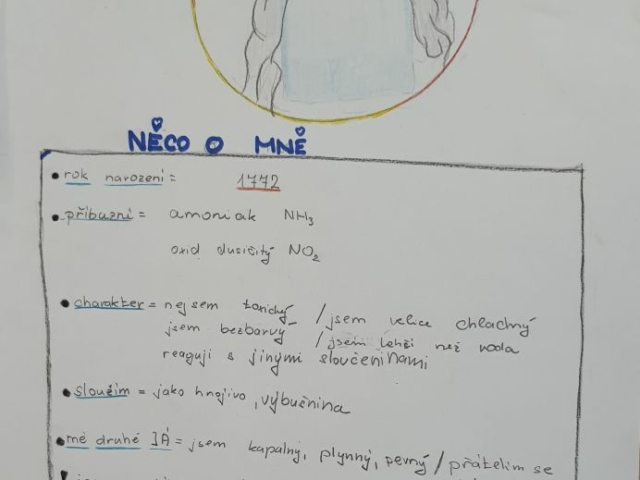 NĚCO O MNĚ
• rok narození = 1772
• příbuzní = amoniak NH₃
oxid dusičitý NO₂
• charakter = nejsem toxický / jsem velice chladný
jsem bezbarvý / jsem lehčí než voda
reaguji s jinými sloučeninami
• sloužím = jako hnojivo, výbušnina
• mé druhé JÁ = jsem kapalný, plynný, pevný / přátelím se